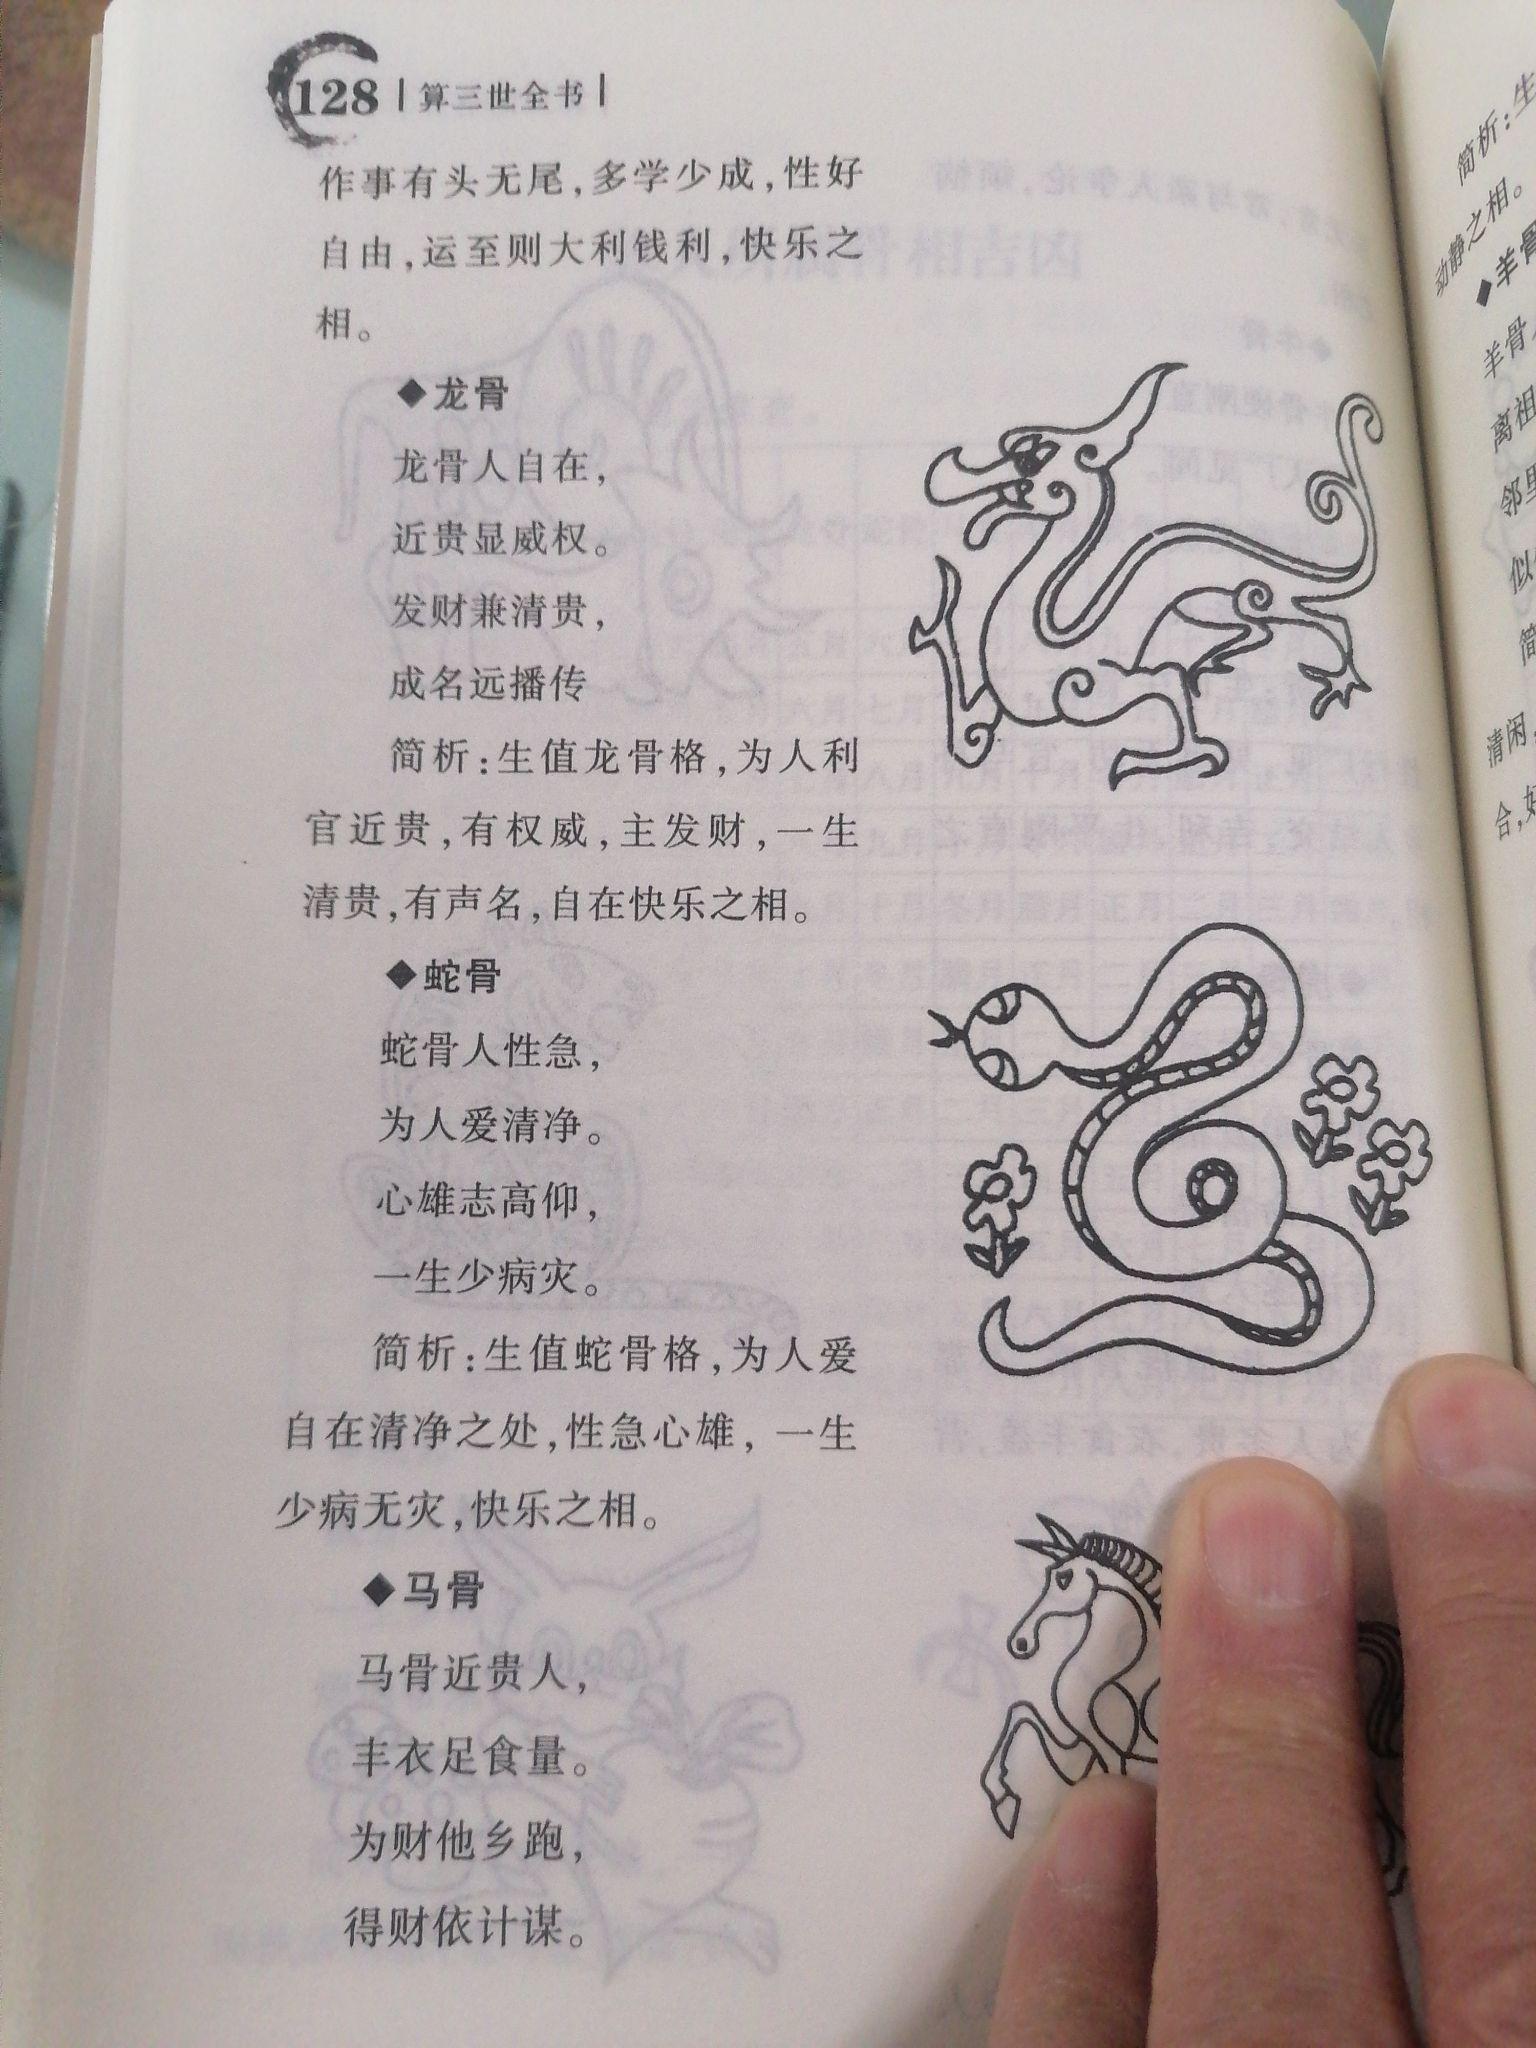 128 | 算三世全书 |
作事有头无尾,多学少成,性好
自由,运至则大利钱利,快乐之
相。
◆龙骨
龙骨人自在,
近贵显威权。
发财兼清贵,
成名远播传
简析:生值龙骨格,为人利
官近贵,有权威,主发财,一生
清贵,有声名,自在快乐之相。
◆蛇骨
蛇骨人性急,
为人爱清净。
心雄志高仰,
一生少病灾。
简析:生值蛇骨格,为人爱
自在清净之处,性急心雄,一生
少病无灾,快乐之相。
◆马骨
马骨近贵人,
丰衣足食量。
为财他乡跑,
得财依计谋。
简析:生
动静之相。
◆羊骨
羊骨
离祖
邻里
似
简
清闲,
合,好